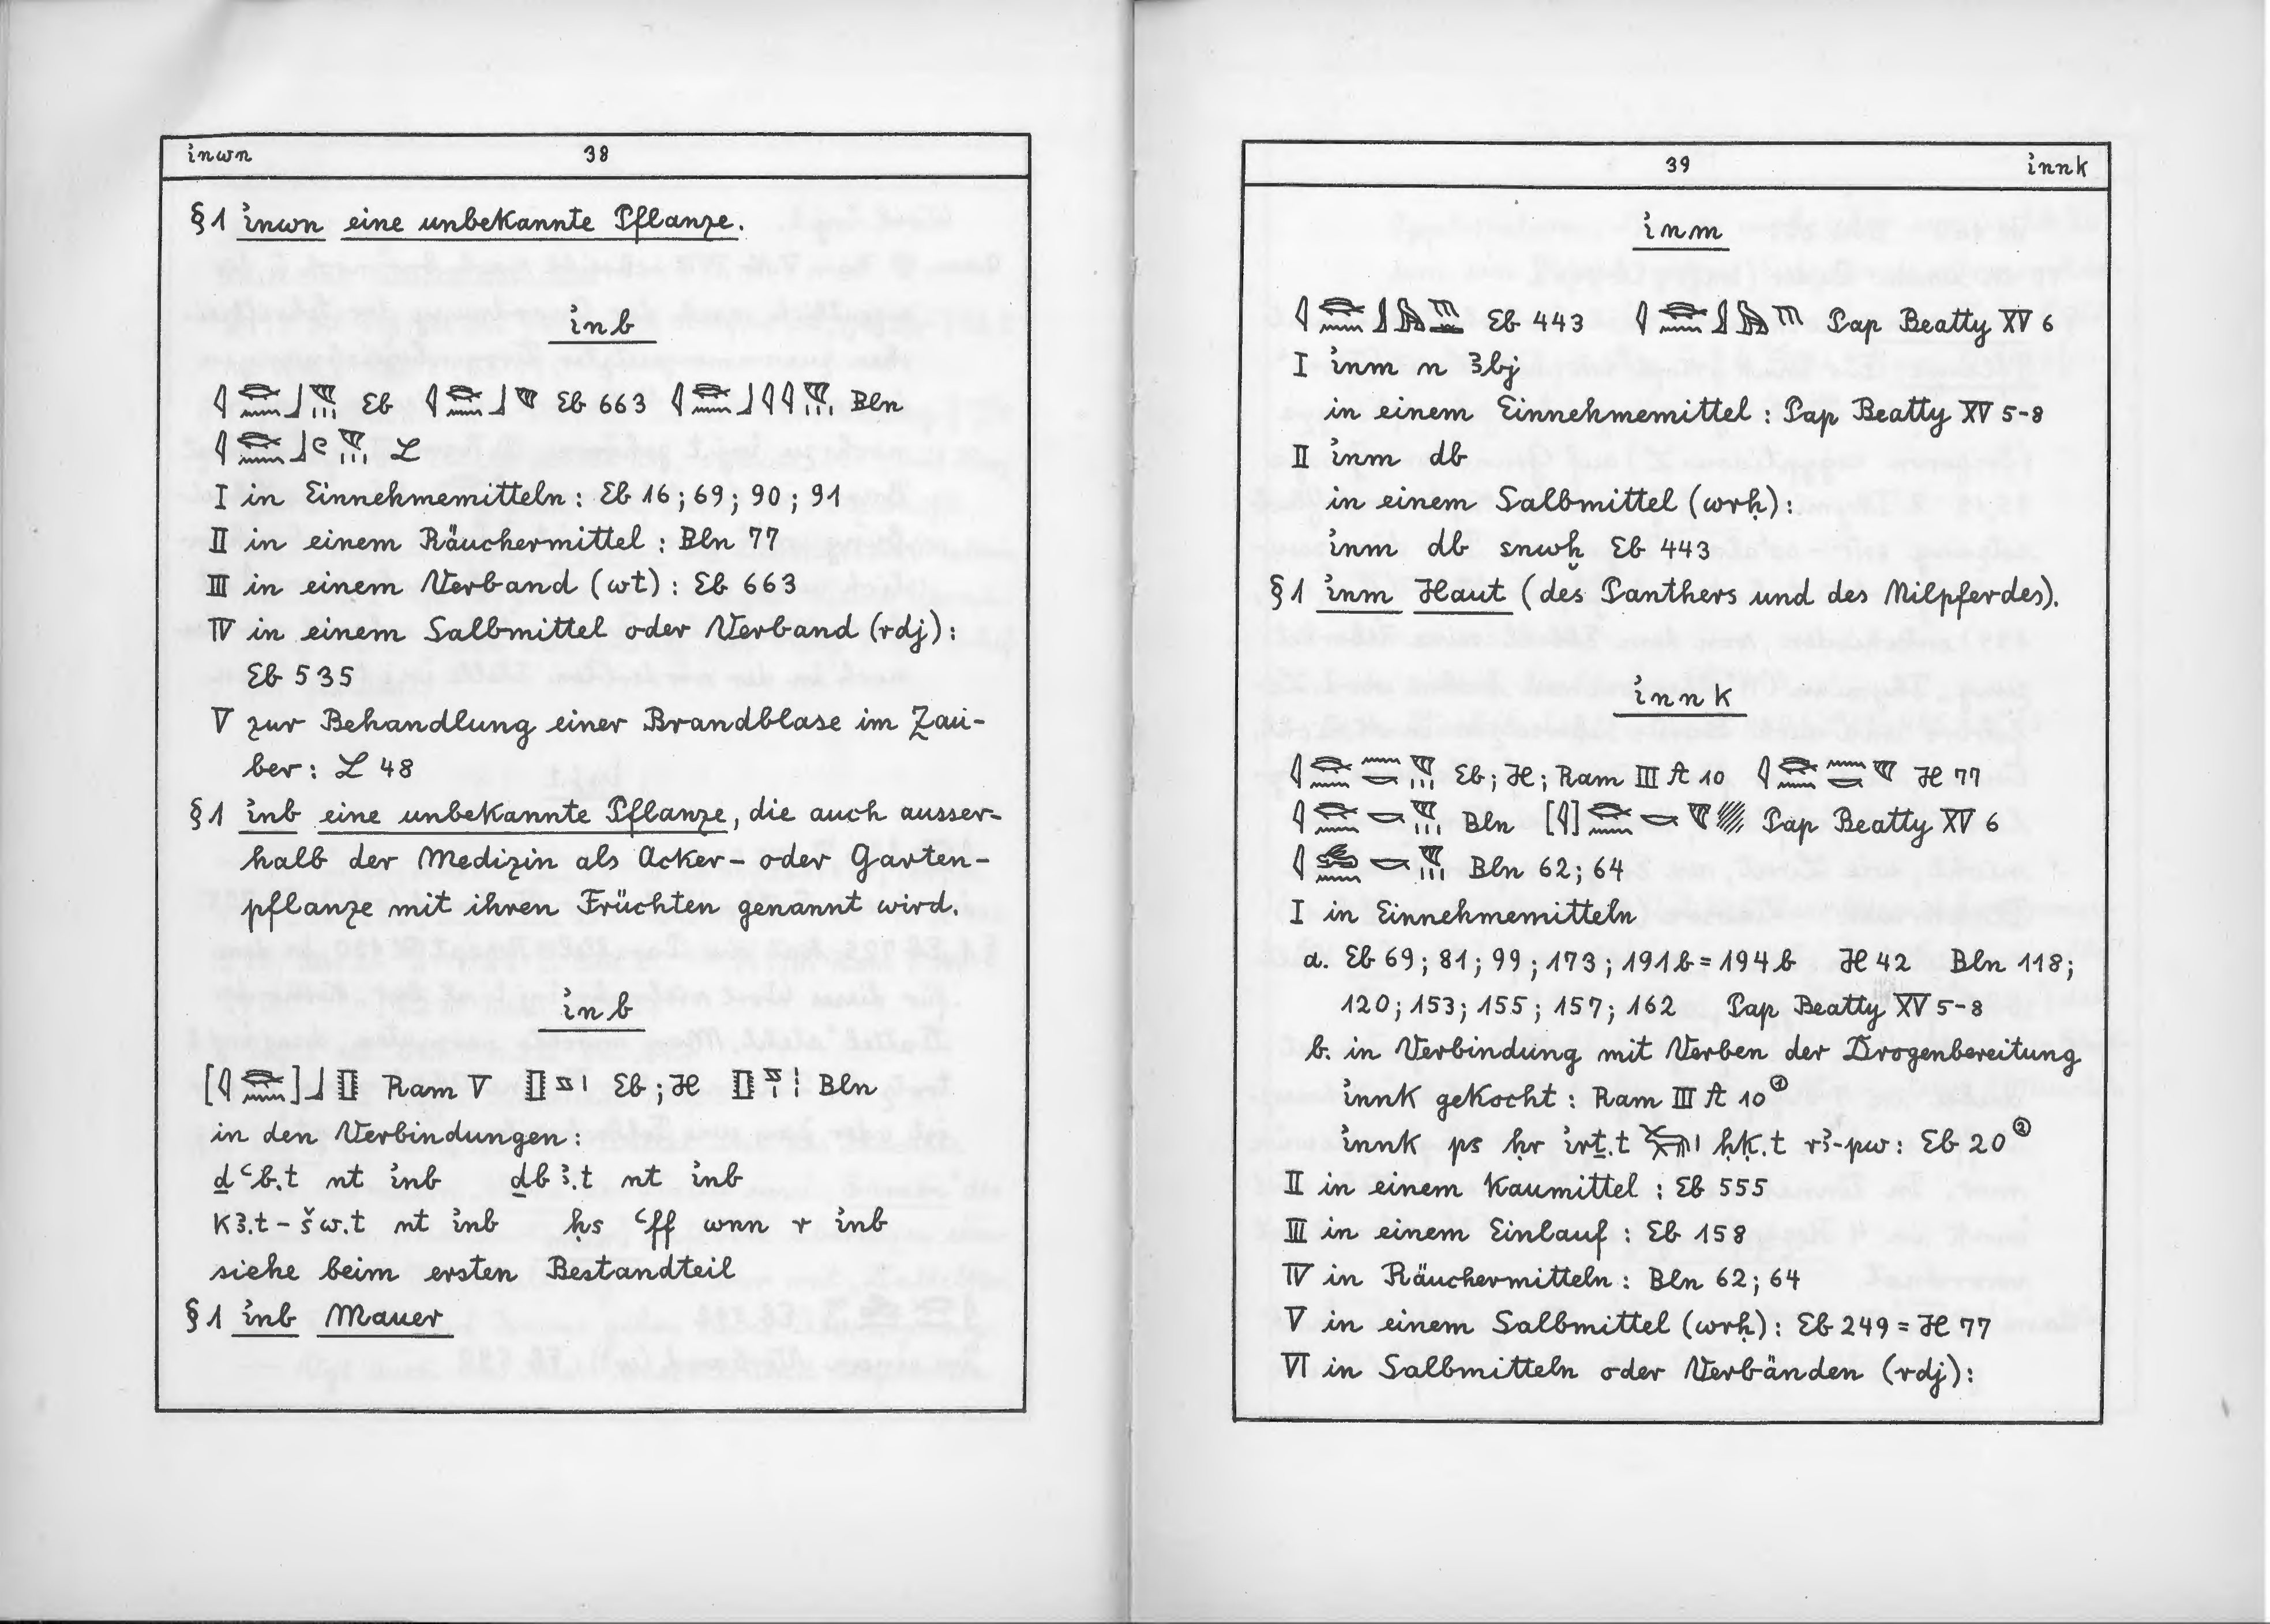 inwn 38
§1 inwn eine unbekannte Pflanze.
inb
Eb Eb 663 Bln
L
I in Einnehmemitteln: Eb 16; 69; 90; 91
II in einem Räuchermittel: Bln 77
III in einem Verband (wt): Eb 663
IV in einem Salbmittel oder Verband (rdj):
Eb 535
V zur Behandlung einer Brandblase im Zau-
ber: L 48
§1 inb eine unbekannte Pflanze, die auch ausser-
halb der Medizin als Acker- oder Garten-
pflanze mit ihren Früchten genannt wird.
inb
Ram V Eb; H Bln
in den Verbindungen:
ḏꜥb.t nt inb ḏbꜣ.t nt inb
kꜣ.t-šw.t nt inb ḥs ꜥff wnn r inb
siehe beim ersten Bestandteil
§1 inb Mauer
39 innk
inm
Eb 443 Pap Beatty XV 6
I inm n ꜣbj
in einem Einnehmemittel: Pap Beatty XV 5-8
II inm db
in einem Salbmittel (wrḥ):
inm db snwḫ Eb 443
§1 inm Haut (des Panthers und des Nilpferdes).
innk
Eb; H; Ram III A 10 H 77
Bln Pap Beatty XV 6
Bln 62; 64
I in Einnehmemitteln
a. Eb 69; 81; 99; 173; 191b = 194b H 42 Bln 118;
120; 153; 155; 157; 162 Pap Beatty XV 5-8
b. in Verbindung mit Verben der Drogenbereitung
innk gekocht: Ram III A 10 ①
innk ps ḥr irṯ.t ḥḳ.t rꜣ-pw: Eb 20 ②
II in einem Kaumittel: Eb 555
III in einem Einlauf: Eb 158
IV in Räuchermitteln: Bln 62; 64
V in einem Salbmittel (wrḥ): Eb 249 = H 77
VI in Salbmitteln oder Verbänden (rdj):